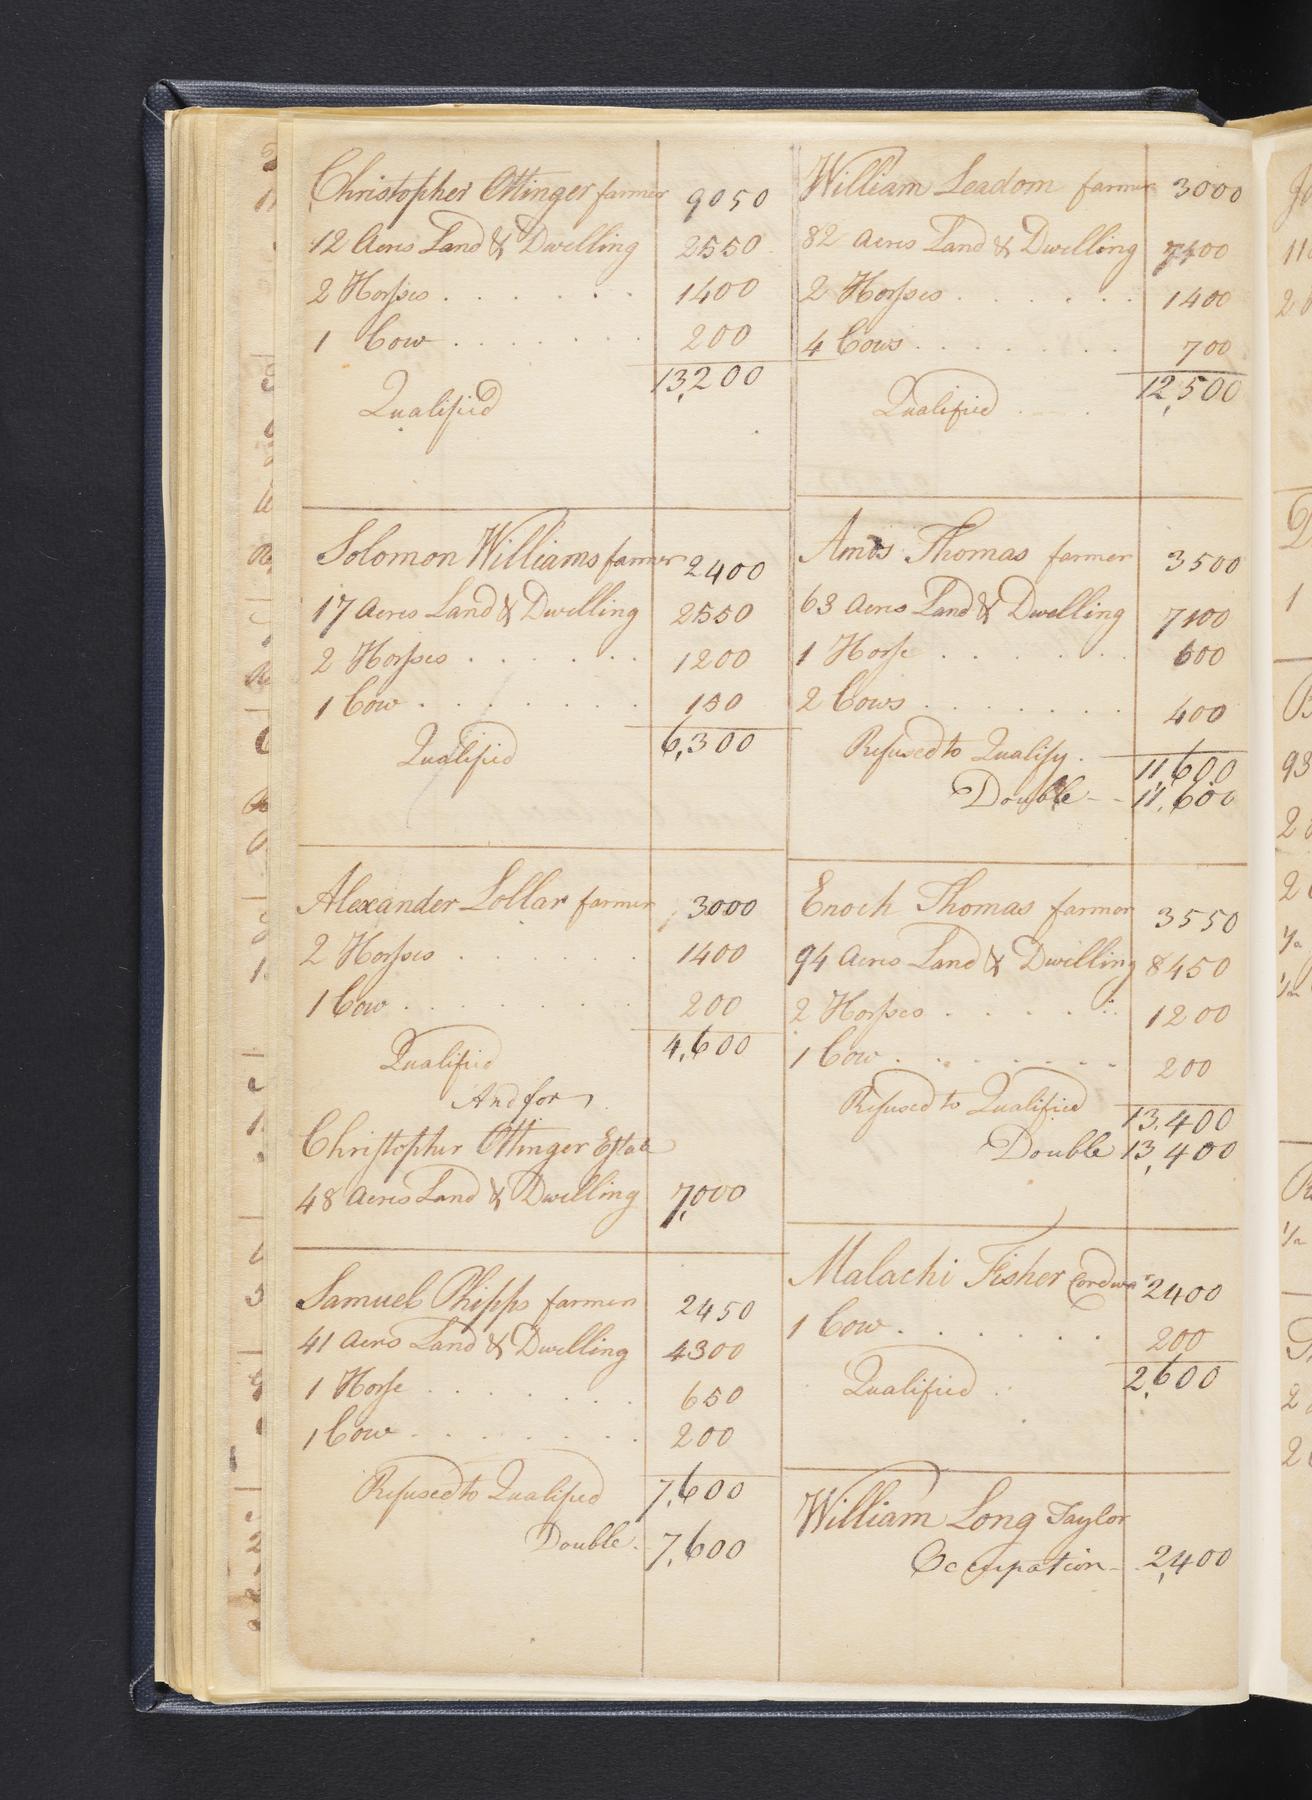 Christopher Ottinger farmer 9050
12 Acres Land & Dwelling 2550
2 Horses 1400
1 Cow 200
13,200
Qualified
Solomon Williams farmer 2400
17 Acres Land & Dwelling 2550
2 Horses 1200
1 Cow 150
6,300
Qualified
Alexander Lollar farmer 3000
2 Horses 1400
1 Cow 200
4,600
Qualified
And for
Christopher Ottinger Estate
48 Acres Land & Dwelling 7,000
Samuel Phipps farmer 2450
41 Acres Land & Dwelling 4300
1 Horse 650
1 Cow 200
Refused to Qualified 7,600
Double 7,600
William Leadom farmer 3000
82 Acres Land & Dwelling 7400
2 Horses 1400
4 Cows 700
12,500
Qualified
Amos Thomas farmer 3500
63 Acres Land & Dwelling 7100
1 Horse 600
2 Cows 400
Refused to Qualify 11,600
Double 11,600
Enoch Thomas farmer 3550
94 Acres Land & Dwelling 8450
2 Horses 1200
1 Cow 200
Refused to Qualified 13,400
Double 13,400
Malachi Fisher Cordwr 2400
1 Cow 200
Qualified 2,600
William Long Taylor
Occupation 2,400